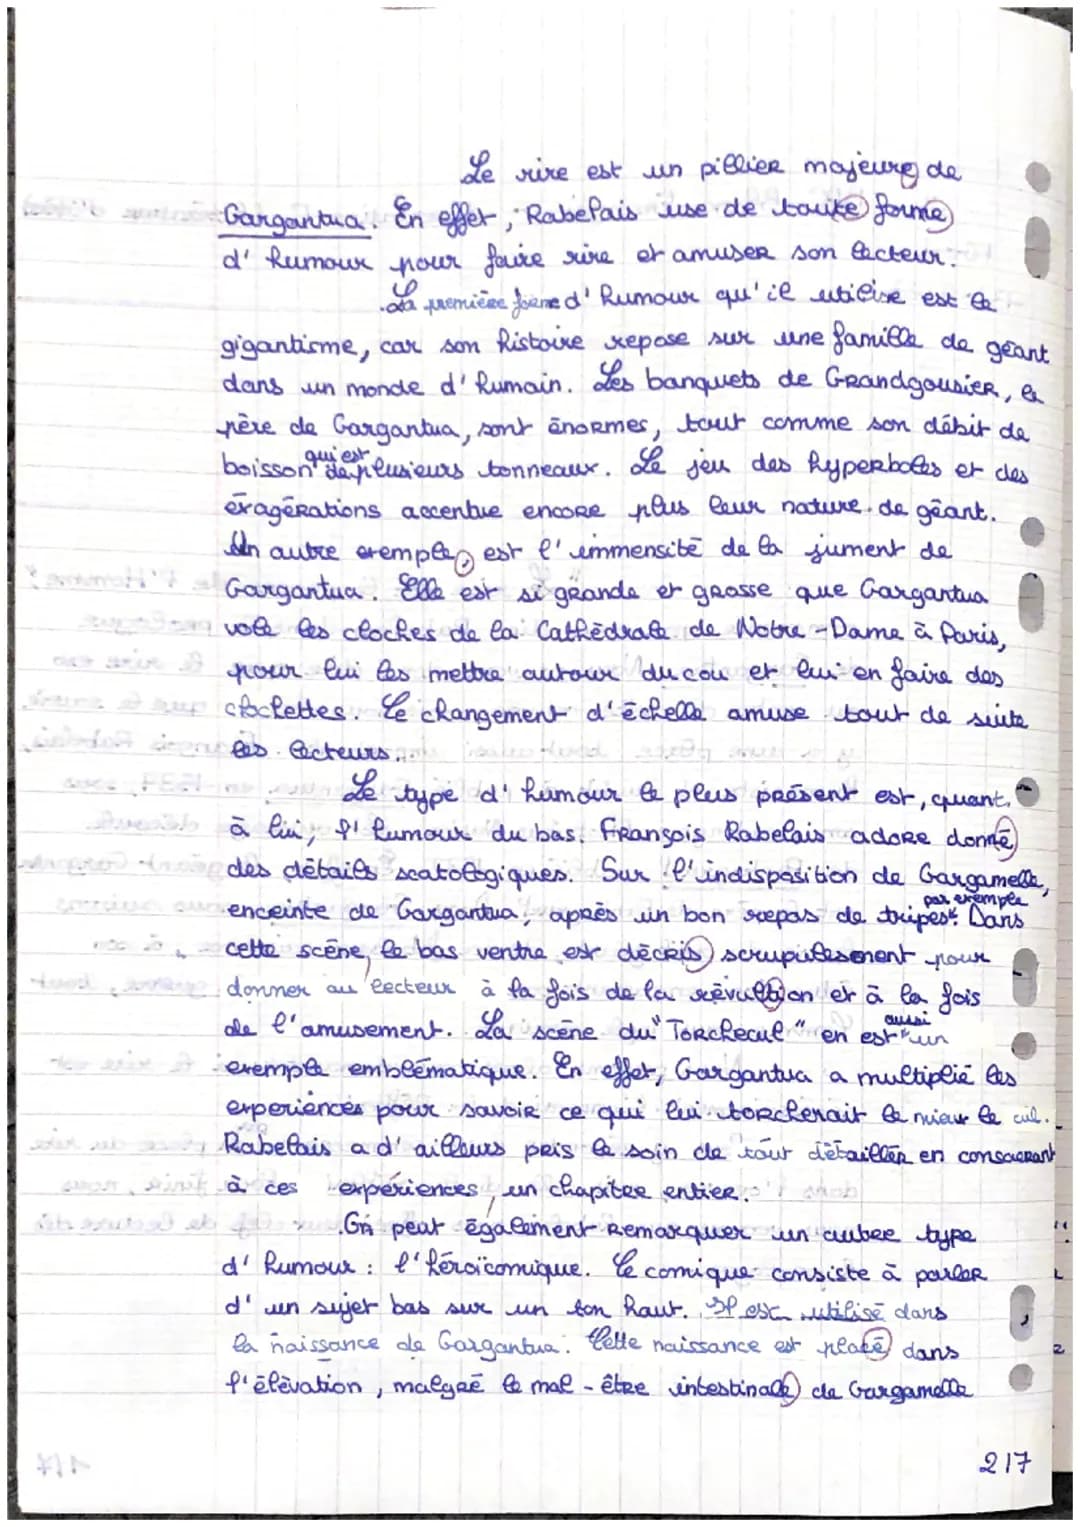 Le rire est un pillier majeure de
Gargantua. En effet, Rabelais use de toute forme
d'humour pour faire rire et amuser son lecteur.
La première forme d'humour qu'il utilise est le
gigantisme, car son histoire repose sur une famille de géant
dans un monde d'humain. Les banquets de Grandgousier, le
père de Gargantua, sont énormes, tout comme son débit de
boisson qui est de plusieurs tonneaux. Le jeu des hyperboles et des
exagérations accentue encore plus leur nature de géant.
Un autre exemple, est l'immensité de la jument de
Gargantua. Elle est si grande et grosse que Gargantua
vole les cloches de la Cathédrale de Notre-Dame à Paris,
pour lui les mettre autour du cou et lui en faire des
clochettes. Le changement d'échelle amuse tout de suite
les lecteurs.
Le type d'humour le plus présent est, quant
à lui, l'humour du bas. François Rabelais adore donné
des détails scatologiques. Sur l'indisposition de Gargamelle,
enceinte de Gargantua, après un bon repas de tripes par exemple. Dans
cette scène, le bas ventre est décris scrupulesement pour
donner au lecteur à la fois de la révultion et à la fois
de l'amusement. La scène du "Torchecul" en est aussi un
exemple emblématique. En effet, Gargantua a multiplié les
experiences pour savoir ce qui lui torcherait le mieux le cul.
Rabelais a d'ailleurs pris le soin de tout détailler en consacrant
à ces expériences, un chapitre entier.
On peut également remarquer un autre type
d'humour : l'héroïcomique. Le comique consiste à parler
d'un sujet bas sur un ton haut. Il est utilisé dans
la naissance de Gargantua. Cette naissance est placé dans
l'élèvation, malgré le mal-être intestinale de Gargamelle
2/7